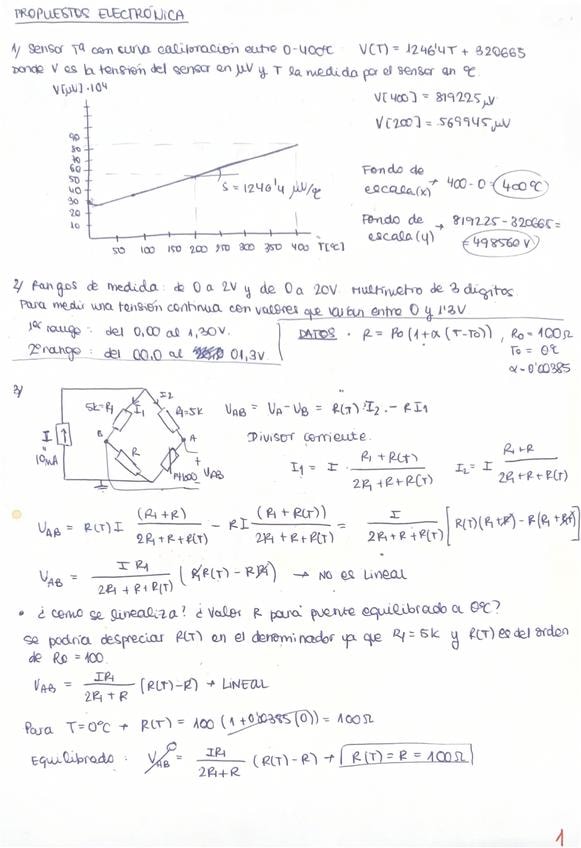 PROPUESTOS ELECTRÓNICA
1) Sensor Tª con curva calibración entre 0-400ºC V(T) = 1246'4T + 320665
Donde V es la tensión del sensor en μV y T la medida por el sensor en ºC.
V[μV]·10⁴
V[400] = 819225 μV
V[200] = 569945 μV
90
80
70
60
50
40
30
20
10
S = 1246'4 μV/ºC
50 100 150 200 250 300 350 400 T[ºC]
Fondo de escala(x) → 400-0 = 400ºC
Fondo de escala(y) → 819225-320665 = 498560 V
2) Rangos de medida: de 0 a 2V y de 0 a 20V. Multímetro de 3 dígitos.
Para medir una tensión continua con valores que varían entre 0 y 1'3V
1er rango: del 0,00 al 1,30V.
2º rango: del 00,0 al 01,3V.
DATOS · R = R0(1+α(T-T0)), R0 = 100Ω
T0 = 0ºC
α = 0'00385
3)
I
10mA
5k=R1
I1
I2
R1=5k
B
A
R
Pt100
+
UAB
-
UAB = VA - VB = R(T)·I2 - R I1
Divisor corriente.
I1 = I · (R1 + R(T)) / (2R1 + R + R(T)) I2 = I (R1 + R) / (2R1 + R + R(T))
UAB = R(T) I (R1+R) / (2R1 + R + R(T)) - R I (R1 + R(T)) / (2R1 + R + R(T)) = I / (2R1 + R + R(T)) [R(T)(R1+R) - R(R1+R(T))]
UAB = I R1 / (2R1 + R + R(T)) (R1R(T) - RR1) → NO es Lineal
• ¿cómo se linealiza? ¿Valor R para puente equilibrado a 0ºC?
Se podría despreciar R(T) en el denominador ya que R1 = 5k y R(T) es del orden
de R0 = 100.
UAB = IR1 / (2R1 + R) (R(T) - R) → LINEAL
Para T=0ºC → R(T) = 100 (1 + 0'00385 (0)) = 100Ω
Equilibrado: VAB 0 = IR1 / (2R1+R) (R(T) - R) → R(T) = R = 100Ω
1